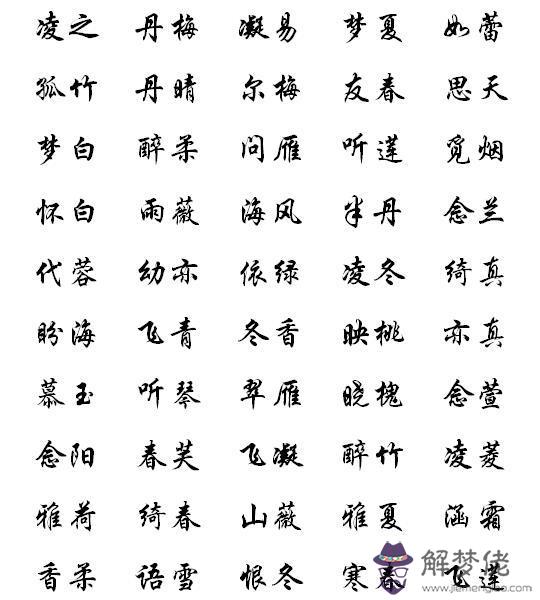 凌之 丹梅 凝易 梦夏 如蕾
孤竹 丹晴 尔梅 友春 思天
梦白 醉柔 问雁 听莲 觅烟
怀白 雨薇 海风 半丹 念兰
代蓉 幼亦 依绿 凌冬 绮真
盼海 飞青 冬香 映桃 亦真
慕玉 听琴 翠雁 晓槐 念萱
念阳 春芙 飞凝 醉竹 凌菱
雅荷 绮春 山薇 雅夏 涵霜
香柔 语雪 恨冬 寒春 飞莲
解梦佬
www.jiemenglao.com